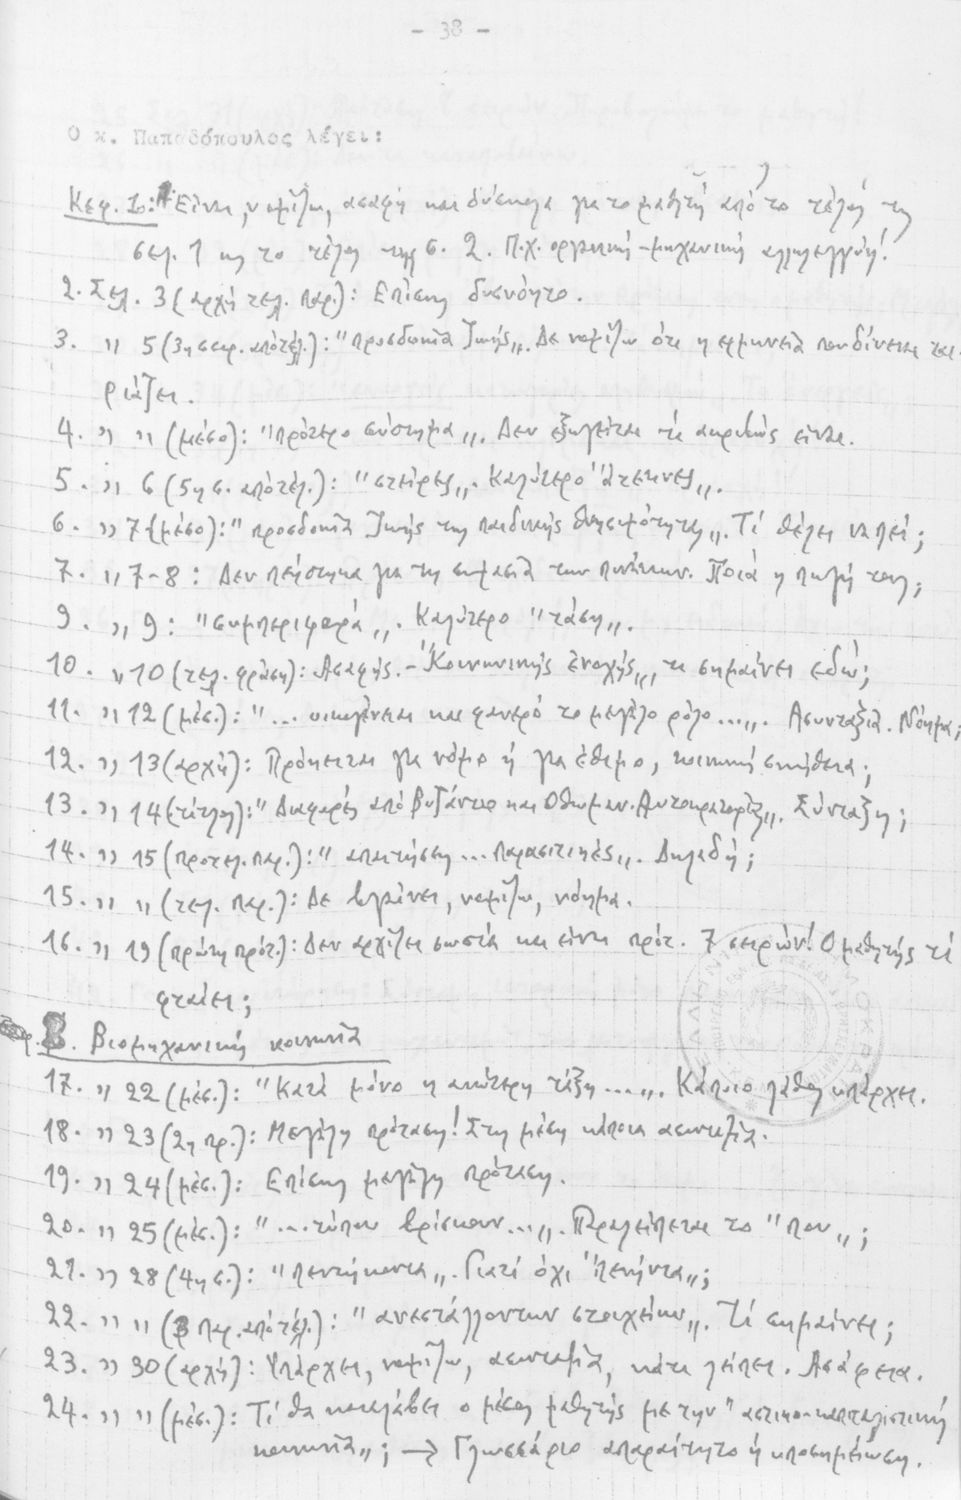 - 38 -
Ο κ. Παπαδόπουλος λέγει:
Κεφ. 1: Είναι, νομίζω, ασαφή και δύσκολα για το μαθητή από το τέλος της
σελ. 1 ως το τέλος της σ. 2. Π.χ. οργανική - μηχανική αλληλεγγύη!
2. Σελ. 3 (αρχή τελ. παρ.): Επίσης δυσνόητο.
3. " 5 (3η σειρ. από τέλ.): "προσδοκία ζωής". Δε νομίζω ότι η ερμηνεία που δίνεται ται-
ριάζει.
4. " " (μέσο): "πρότερο σύστημα". Δεν εξηγείται τι ακριβώς είναι.
5. " 6 (5η σ. από τέλ.): "στείρες". Καλύτερο "άτεκνες".
6. " 7 (μέσο): "προσδοκία ζωής της παιδικής θνησιμότητας". Τί θέλει να πεί;
7. " 7-8: Δεν πείστηκα για τη σημασία των πινάκων. Ποιά η πηγή τους;
9. " 9: "συμπεριφορά". Καλύτερο "τάση".
10. " 10 (τελ. φράση): Ασαφής. - "Κοινωνικής ενοχής", τι σημαίνει εδώ;
11. " 12 (μέσ.): "... οικογένεια και φανερό το μεγάλο ρόλο...". Ασυνταξία. Νόημα;
12. " 13 (αρχή): Πρόκειται για νόμο ή για έθιμο, κοινική συνήθεια;
13. " 14 (τίτλος): "Διαφορές από Βυζάντιο και Οθωμαν. Αυτοκρατορίας". Σύνταξη;
14. " 15 (προτελ. παρ.): "απαιτήσεις ... παρασιτικές". Δηλαδή;
15. " " (τελ. παρ.): Δε βγαίνει, νομίζω, νόημα.
16. " 19 (πρώτη πρότ.): Δεν αρχίζει σωστά και είναι πρότ. 7 σειρών! Ο μαθητής τί
φταίει;
Β. Βιομηχανική κοινωνία
17. " 22 (μέσ.): "Κατά μόνο η ανώτερη τάξη ...". Κάποιο λάθος υπάρχει.
18. " 23 (2η πρ.): Μεγάλη πρόταση! Στη μέση κάποια ασυνταξία.
19. " 24 (μέσ.): Επίσης μεγάλη πρόταση.
20. " 25 (μέσ.): "...τύπου βρίσκουν...". Παραλείπεται το "που";
21. " 28 (4η σ.): "πεντήκοντα". Γιατί όχι "πενήντα";
22. " " (3 παρ. από τέλ.): "ανεστάλλοντων στοιχείων". Τί σημαίνει;
23. " 30 (αρχή): Υπάρχει, νομίζω, ασυνταξία, κάτι λείπει. Ασάφεια.
24. " " (μέσ.): Τί θα καταλάβει ο μέσος μαθητής με την "αστικο-καπιταλιστική
κοινωνία"; → Γλωσσάριο απαραίτητο ή υποσημείωση.